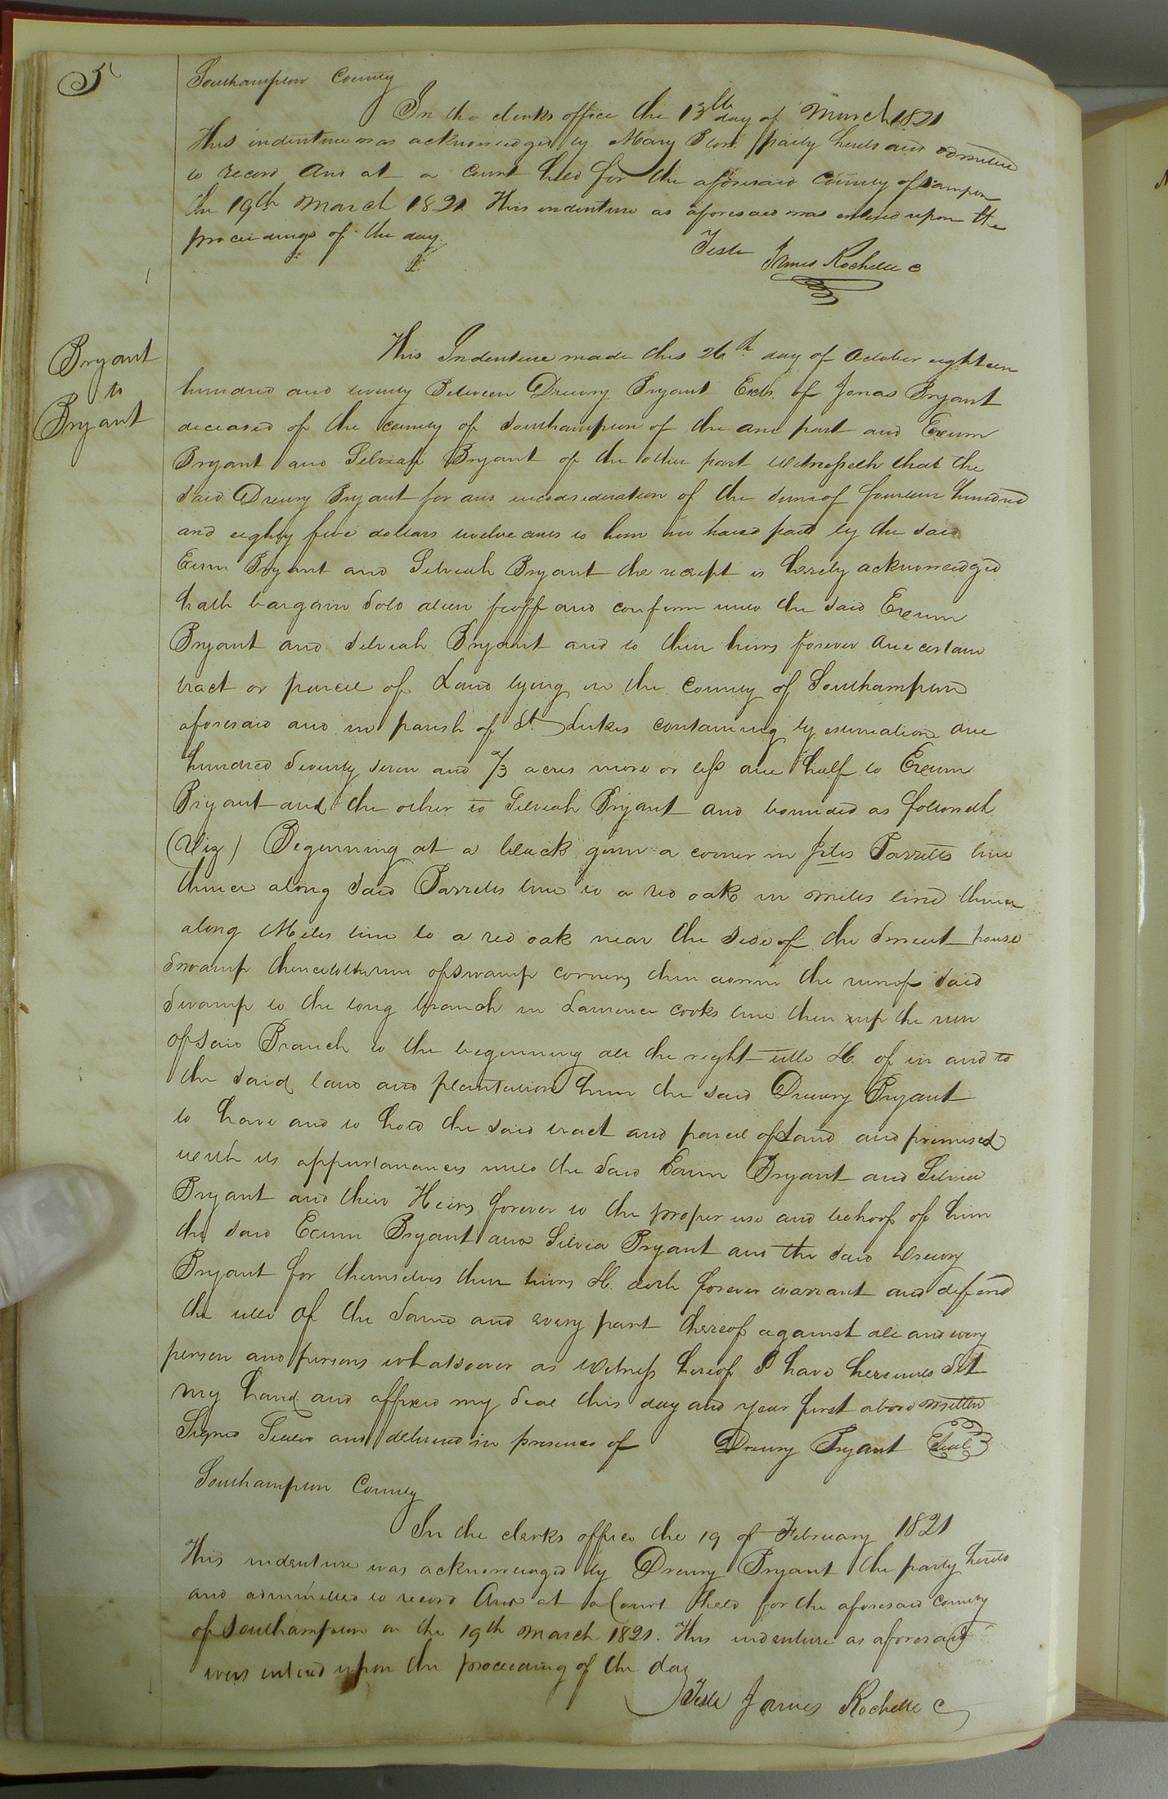 5
Southampton County
In the clerks office the 13th day of March 1821
This indenture was acknowledged by Mary party hereto and admitted
to record And at a Court held for the aforesaid County of Sampton
the 19th March 1821 This indenture as aforesaid was entered upon the
proceedings of the day
Teste James Rochelle C
Bryant
to
Bryant
This Indenture made this 26th day of October eighteen
hundred and twenty Between Drewry Bryant Exctr. of Jonas Bryant
deceased of the county of Southampton of the one part and Exum
Bryant and Silviah Bryant of the other part Witnesseth that the
said Drewry Bryant for and inconsideration of the sum of fourteen hundred
and eighty five dollars twelve cents to him in hand paid by the said
Exum Bryant and Silviah Bryant the receipt is hereby acknowledged
hath bargain sold alien feoff and confirm unto the said Exum
Bryant and Silviah Bryant and to their heirs forever one certain
tract or parcel of Land lying in the County of Southampton
aforesaid and in parish of St. Lukes containing by estimation one
hundred seventy seven and 2/3 acres more or less one half to Exum
Bryant and the other to Silviah Bryant and bounded as followeth
(Viz) Beginning at a black gum a corner in Jiles Barretts line
thence along said Barretts line to a red oak in Miles line thence
along Miles line to a red oak near the side of the house
Swamp thence to the run of swamp corners then down the run of said
Swamp to the long branch in Laurence Cooks line then up the run
of said Branch to the beginning all the right title &c. of in and to
the said land and plantation him the said Drewry Bryant
to have and to hold the said tract and parcel of Land and premised
with its appurtanances unto the said Exum Bryant and Silvia
Bryant and their Heirs forever to the proper use and behoof of him
the said Exum Bryant and Silvia Bryant and the said Drewry
Bryant for themselves their heirs &c. doth forever warrant and defend
the title of the Land and every part thereof against all and every
person and persons whatsoever as Witness hereof I have hereunto Set
my hand and affixed my seal this day and year first above written
Signed Sealed and delivered in presence of Drewry Bryant Seal
Southampton County
In the clerks office the 19 of February 1821
This indenture was acknowledged by Drewry Bryant the party hereto
and admitted to record And at a Court held for the aforesaid County
of Southampton on the 19th March 1821. This indenture as aforesaid
was entered upon the proceeding of the day
Teste James Rochelle C